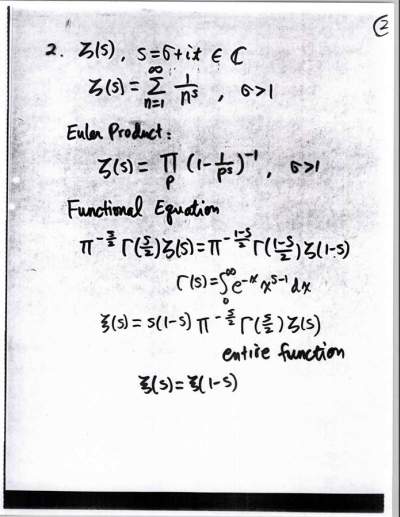 ②
2. ζ(s), s=σ+it ∈ ℂ
ζ(s) = ∑_{n=1}^{∞} 1/n^s , σ>1
Euler Product:
ζ(s) = ∏_p (1-1/p^s)^{-1}, σ>1
Functional Equation
π^{-s/2} Γ(s/2) ζ(s) = π^{-(1-s)/2} Γ((1-s)/2) ζ(1-s)
Γ(s) = ∫_0^∞ e^{-x} x^{s-1} dx
ξ(s) = s(1-s) π^{-s/2} Γ(s/2) ζ(s)
entire function
ξ(s) = ξ(1-s)